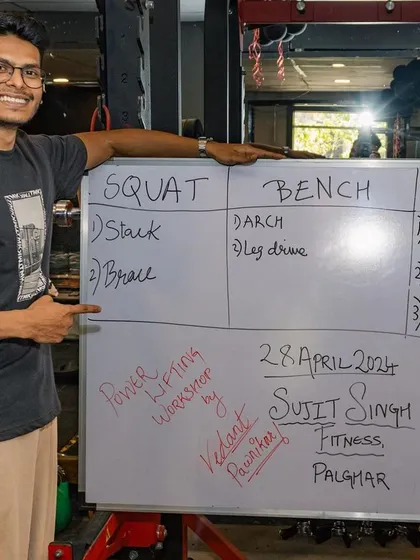 SQUAT
1) Stack
2) Brace
BENCH
1) ARCH
2) Leg drive
28 APRIL 2024
SUJIT SINGH
FITNESS,
PALGHAR
POWER LIFTING
WORKSHOP
by
Vedant
Pawnikar!